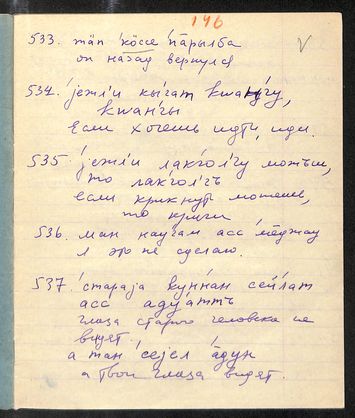 146
533. тӓп 'кӧссе 'па̄рылба
он назад вернулся
534. 'jежл'и кы'гат ква'нγу,
кван'гы
Если хочешь идти, иди.
535. 'jежл'и лаk'гол'гу можъш,
то лаk'гол'гъ
если крикнуть можешь,
то крикни
536. ман на'угам асс 'ме̄джау
я это не сделаю.
537. 'стараjа kун'нан сей'лат
асс аду'аттъ
глаза старого человека не
видят.
а тан 'сеjел 'а̄дун
а твои глаза видят.